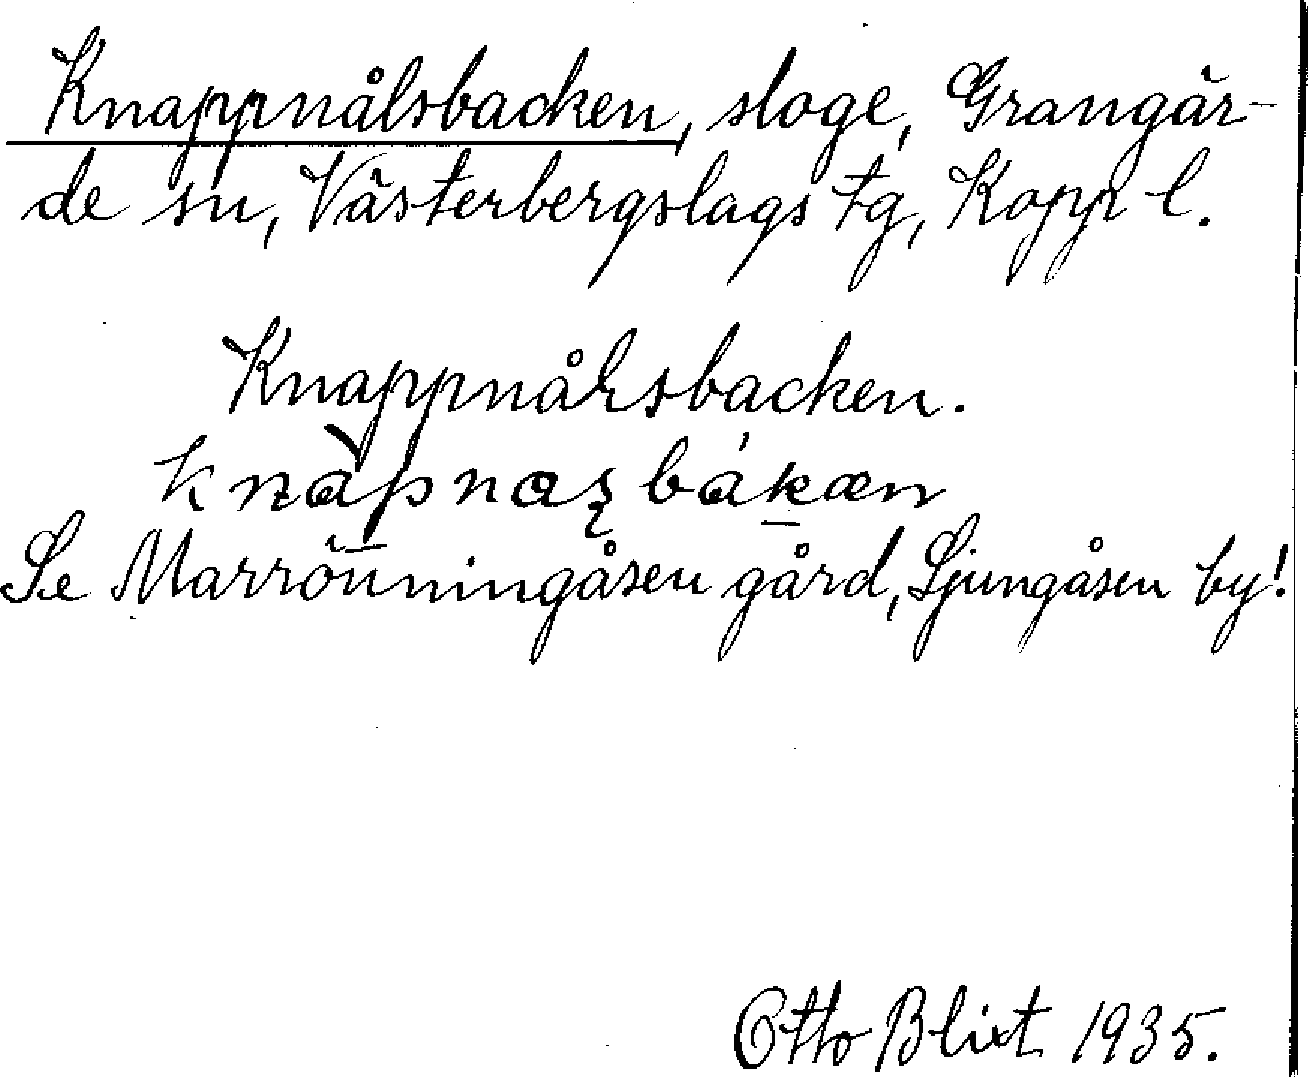 Knappnålsbacken, sloge, Grangär-
de sn, Västerbergslags tg, Kopp l.
Knappnålsbacken.
Se Marrönningåsen gård, Ljungåsen by!
Otto Blixt 1935.